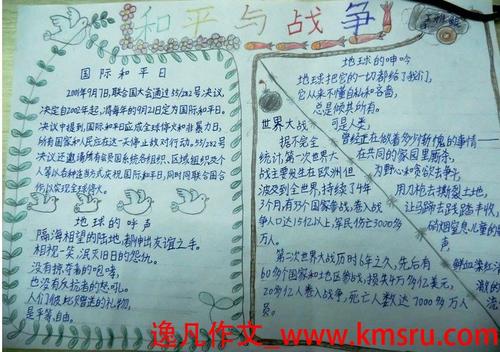 和平与战争
国际和平日
2001年9月7日,联合国大会通过55/282号决议,
决定自2002年起,将每年的9月21日定为国际和平日。
决议中提到,国际和平日应成全球停火和非暴力日,
所有国家和人民在这一天停止敌对行动。55/282号
决议还邀请所有会员国系统各组织、区域组织及个
人等以各种适当方式庆祝国际和平日,同时同联合国合
作以实现全球停火。
地球的呼声
隔海相望的陆地,都伸出友谊之手。
相视一笑,泯灭旧日的怨仇。
没有掠夺者的咆哮,
也没有反抗者的怒吼。
人们彼此赠送的礼物,
是平等、自由。
地球的呻吟
地球把它的一切都给了我们,
它从来不懂自私和吝啬,
总是倾其所有。
可是人类,
曾经在做着多少惭愧的事情——
在共同的家园里厮杀,
为野心和贪欲去争斗。
用几枪去撕裂土地,
让马蹄去践踏丰收。
硝烟窒息儿童的
鲜血染红
激的
世界大战
据不完全
统计,第一次世界大
战主要发生在欧洲但
波及到全世界,持续了4年
3个月,有33个国家参战,卷入战
争人口达15亿以上,军民伤亡3000多
万人。
第二次世界大战历时6年之久,先后有
60多个国家和地区参战,损失4万多亿美元,
20多亿人卷入战争,死亡人数达7000多万人
逸凡作文_www.kmsru.com